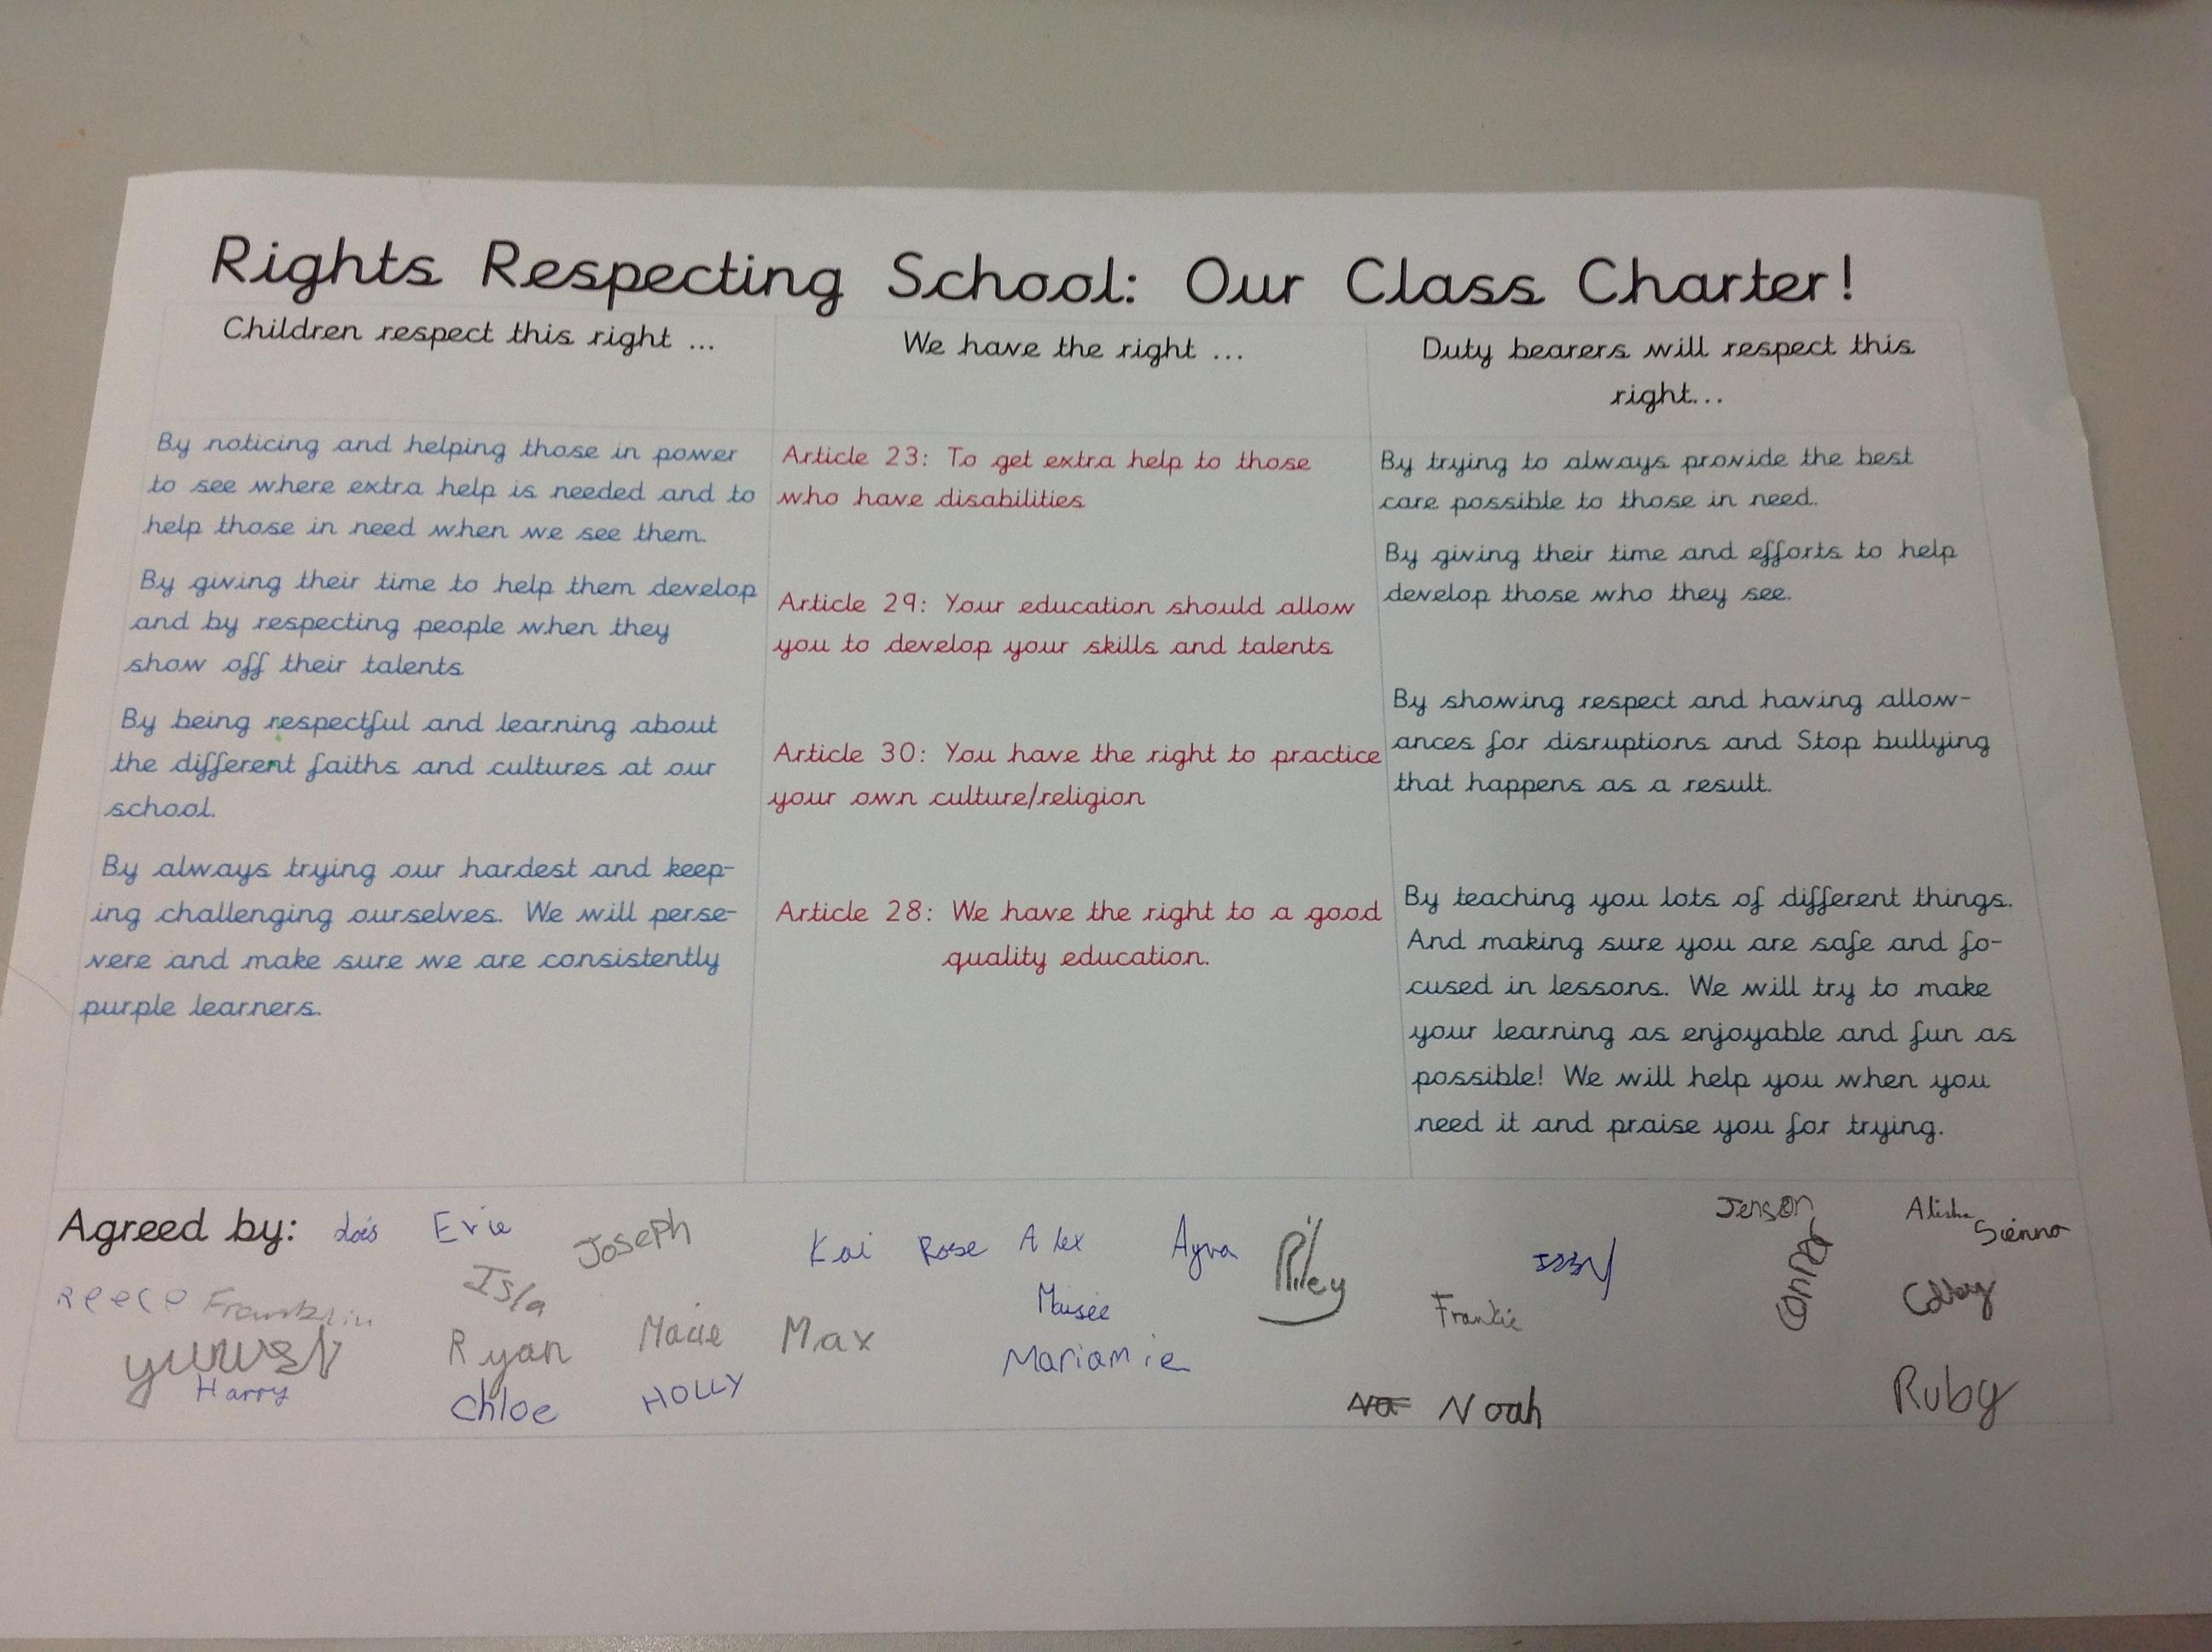 Rights Respecting School: Our Class Charter!
Children respect this right ...
By noticing and helping those in power
to see where extra help is needed and to
help those in need when we see them.
By giving their time to help them develop
and by respecting people when they
show off their talents
By being respectful and learning about
the different faiths and cultures at our
school.
By always trying our hardest and keep-
ing challenging ourselves. We will perse-
vere and make sure we are consistently
purple learners.
We have the right ...
Article 23: To get extra help to those
who have disabilities
Article 29: Your education should allow
you to develop your skills and talents
Article 30: You have the right to practice
your own culture/religion
Article 28: We have the right to a good
quality education.
Duty bearers will respect this
right...
By trying to always provide the best
care possible to those in need.
By giving their time and efforts to help
develop those who they see.
By showing respect and having allow-
ances for disruptions and Stop bullying
that happens as a result.
By teaching you lots of different things.
And making sure you are safe and fo-
cused in lessons. We will try to make
your learning as enjoyable and fun as
possible! We will help you when you
need it and praise you for trying.
Agreed by: Lois Evie Joseph Kai Rose Alex Ayva Riley Issy Jenson Alisha Sienna
Reece Franklin Isla Maisee Frankie Connor
Ryan Macie Max Mariamie
Harry Chloe HOLLY Noah Ruby